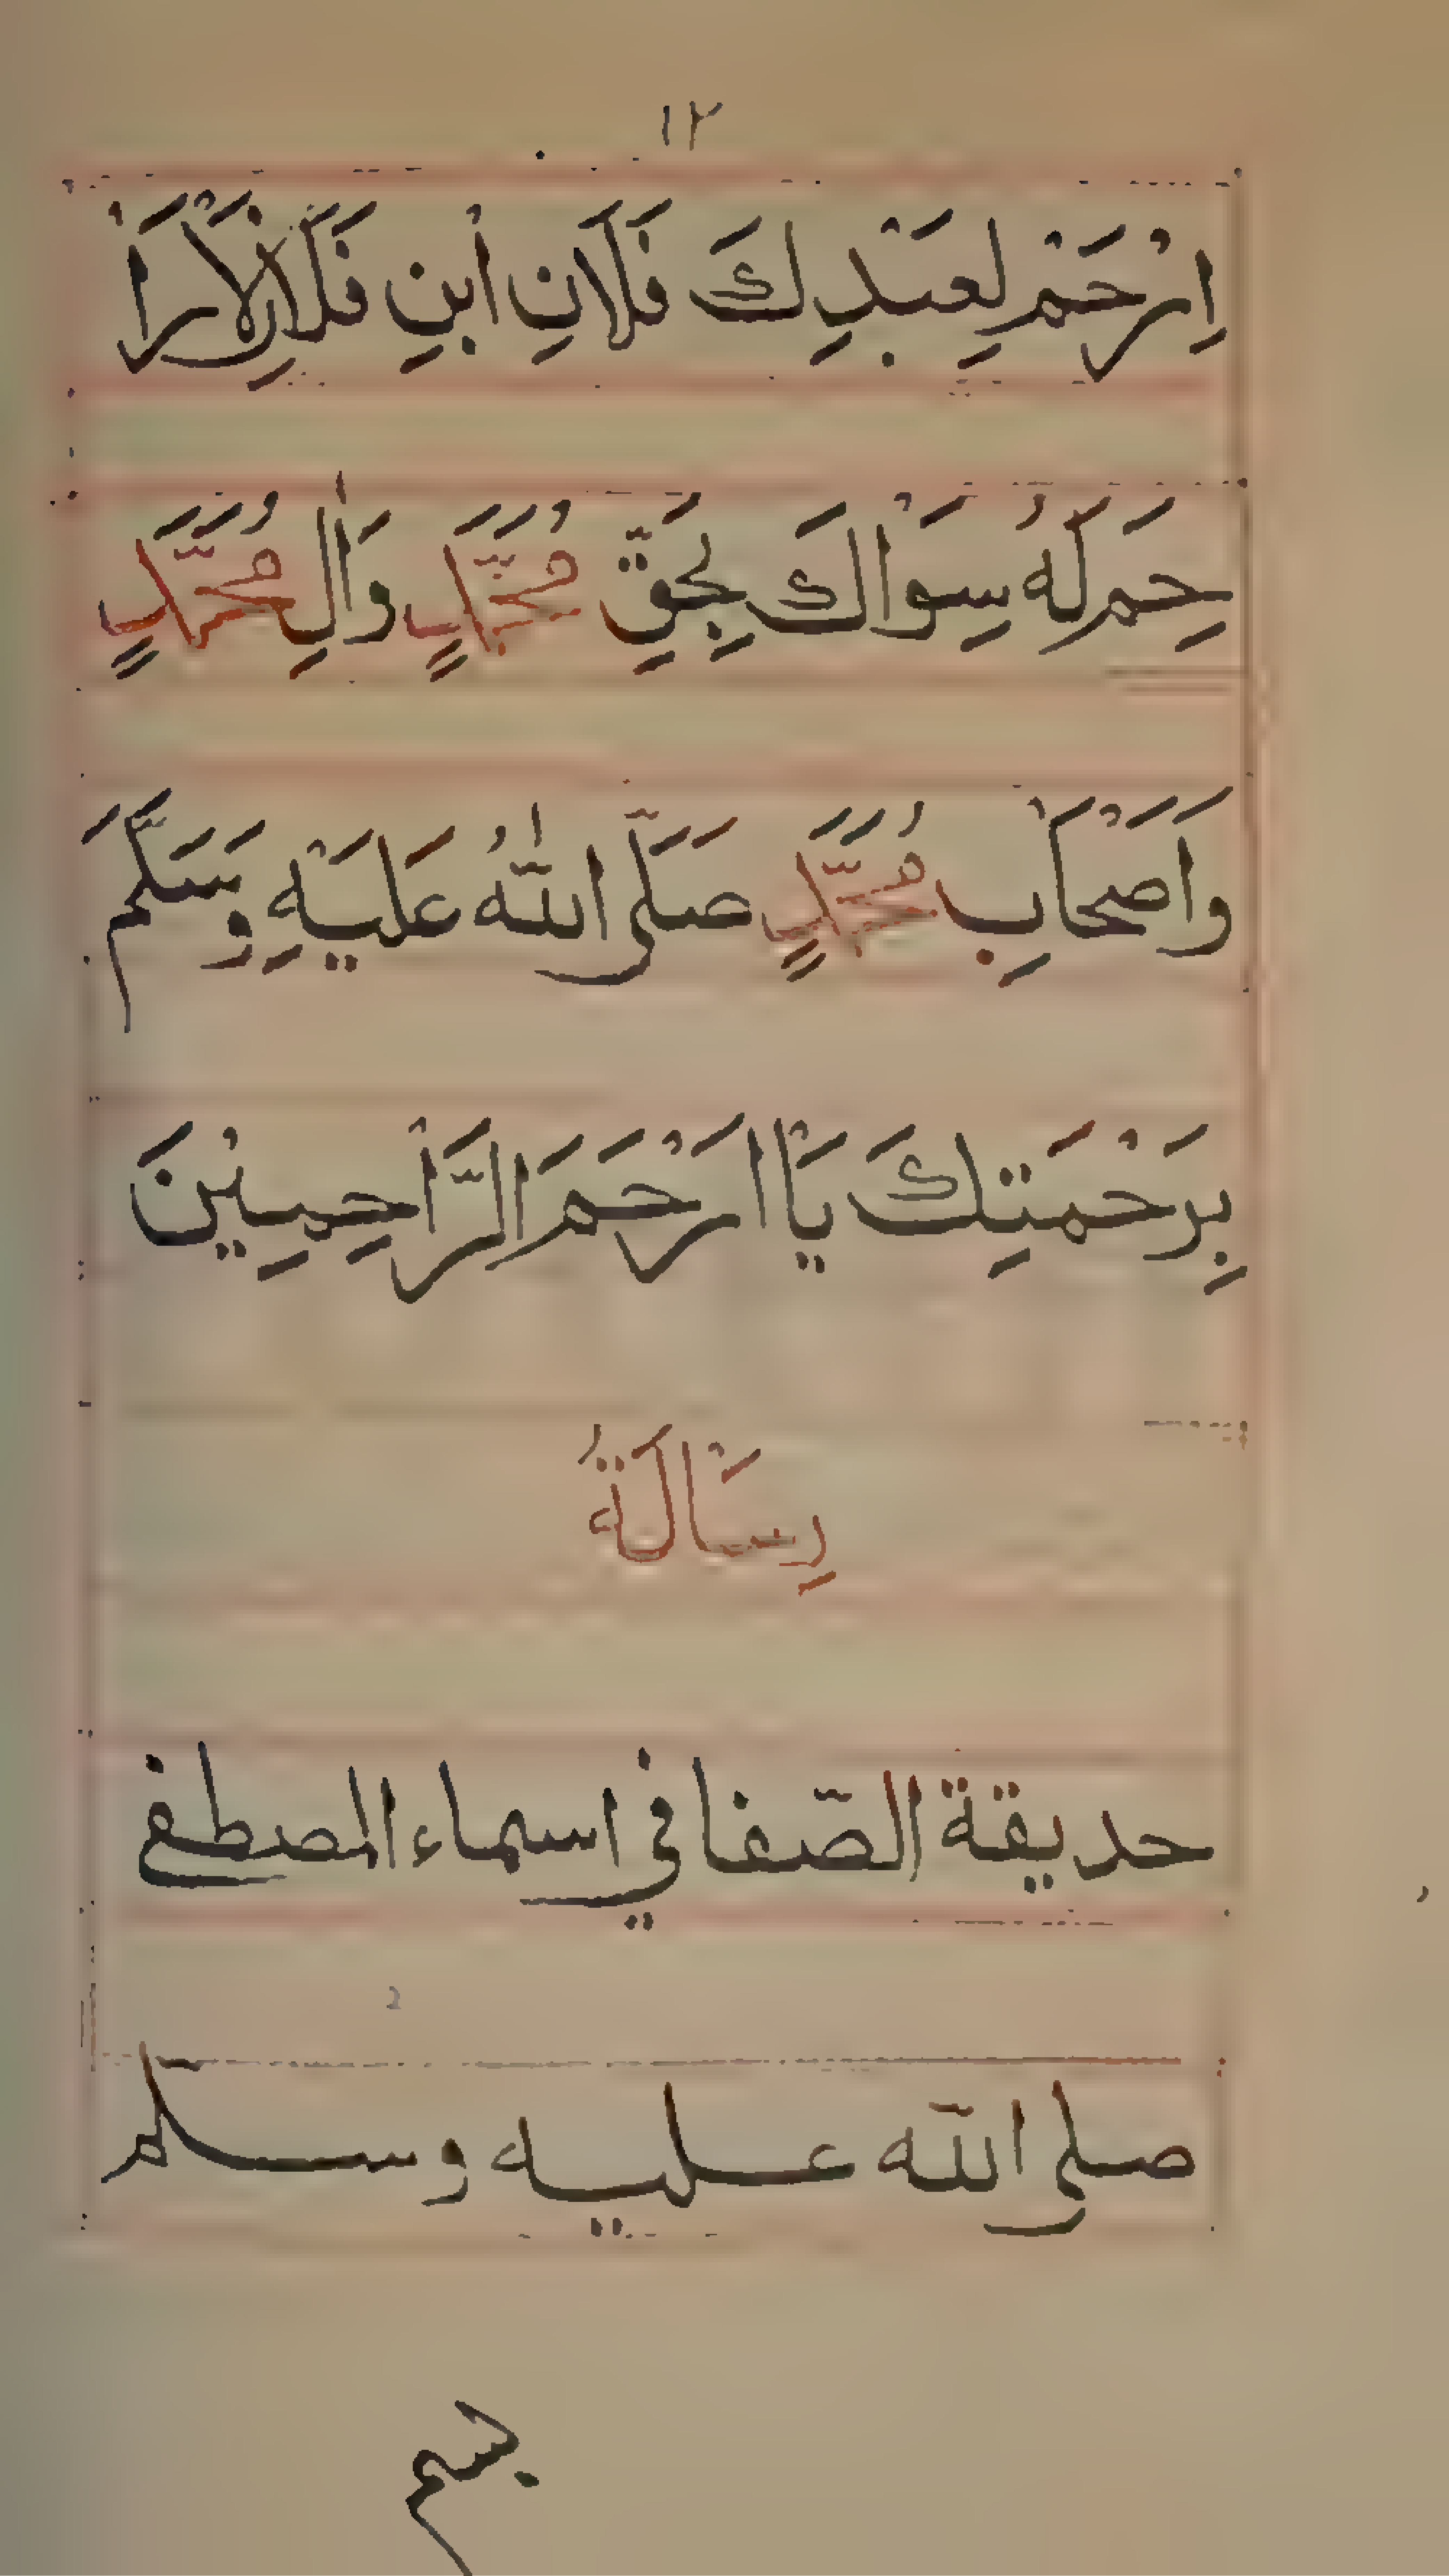 ١٢
اِرْحَمْ لِعَبْدِكَ فَلَانِ ابْنِ فَلَّانٍ لَارَا
حِمَ لَهُ سِوَاكَ بِحَقِّ مُحَمَّدٍ وَاٰلِ مُحَمَّدٍ
وَاَصْحَابِ مُحَمَّدٍ صَلَّى اللّٰهُ عَلَيْهِ وَسَلَّمَ
بِرَحْمَتِكَ يَا اَرْحَمَ الرَّاحِمِيْنَ
رِسَالَةُ
حديقة الصّفا في اسماء المصطفى
صلى الله عليه وسلم
بسم